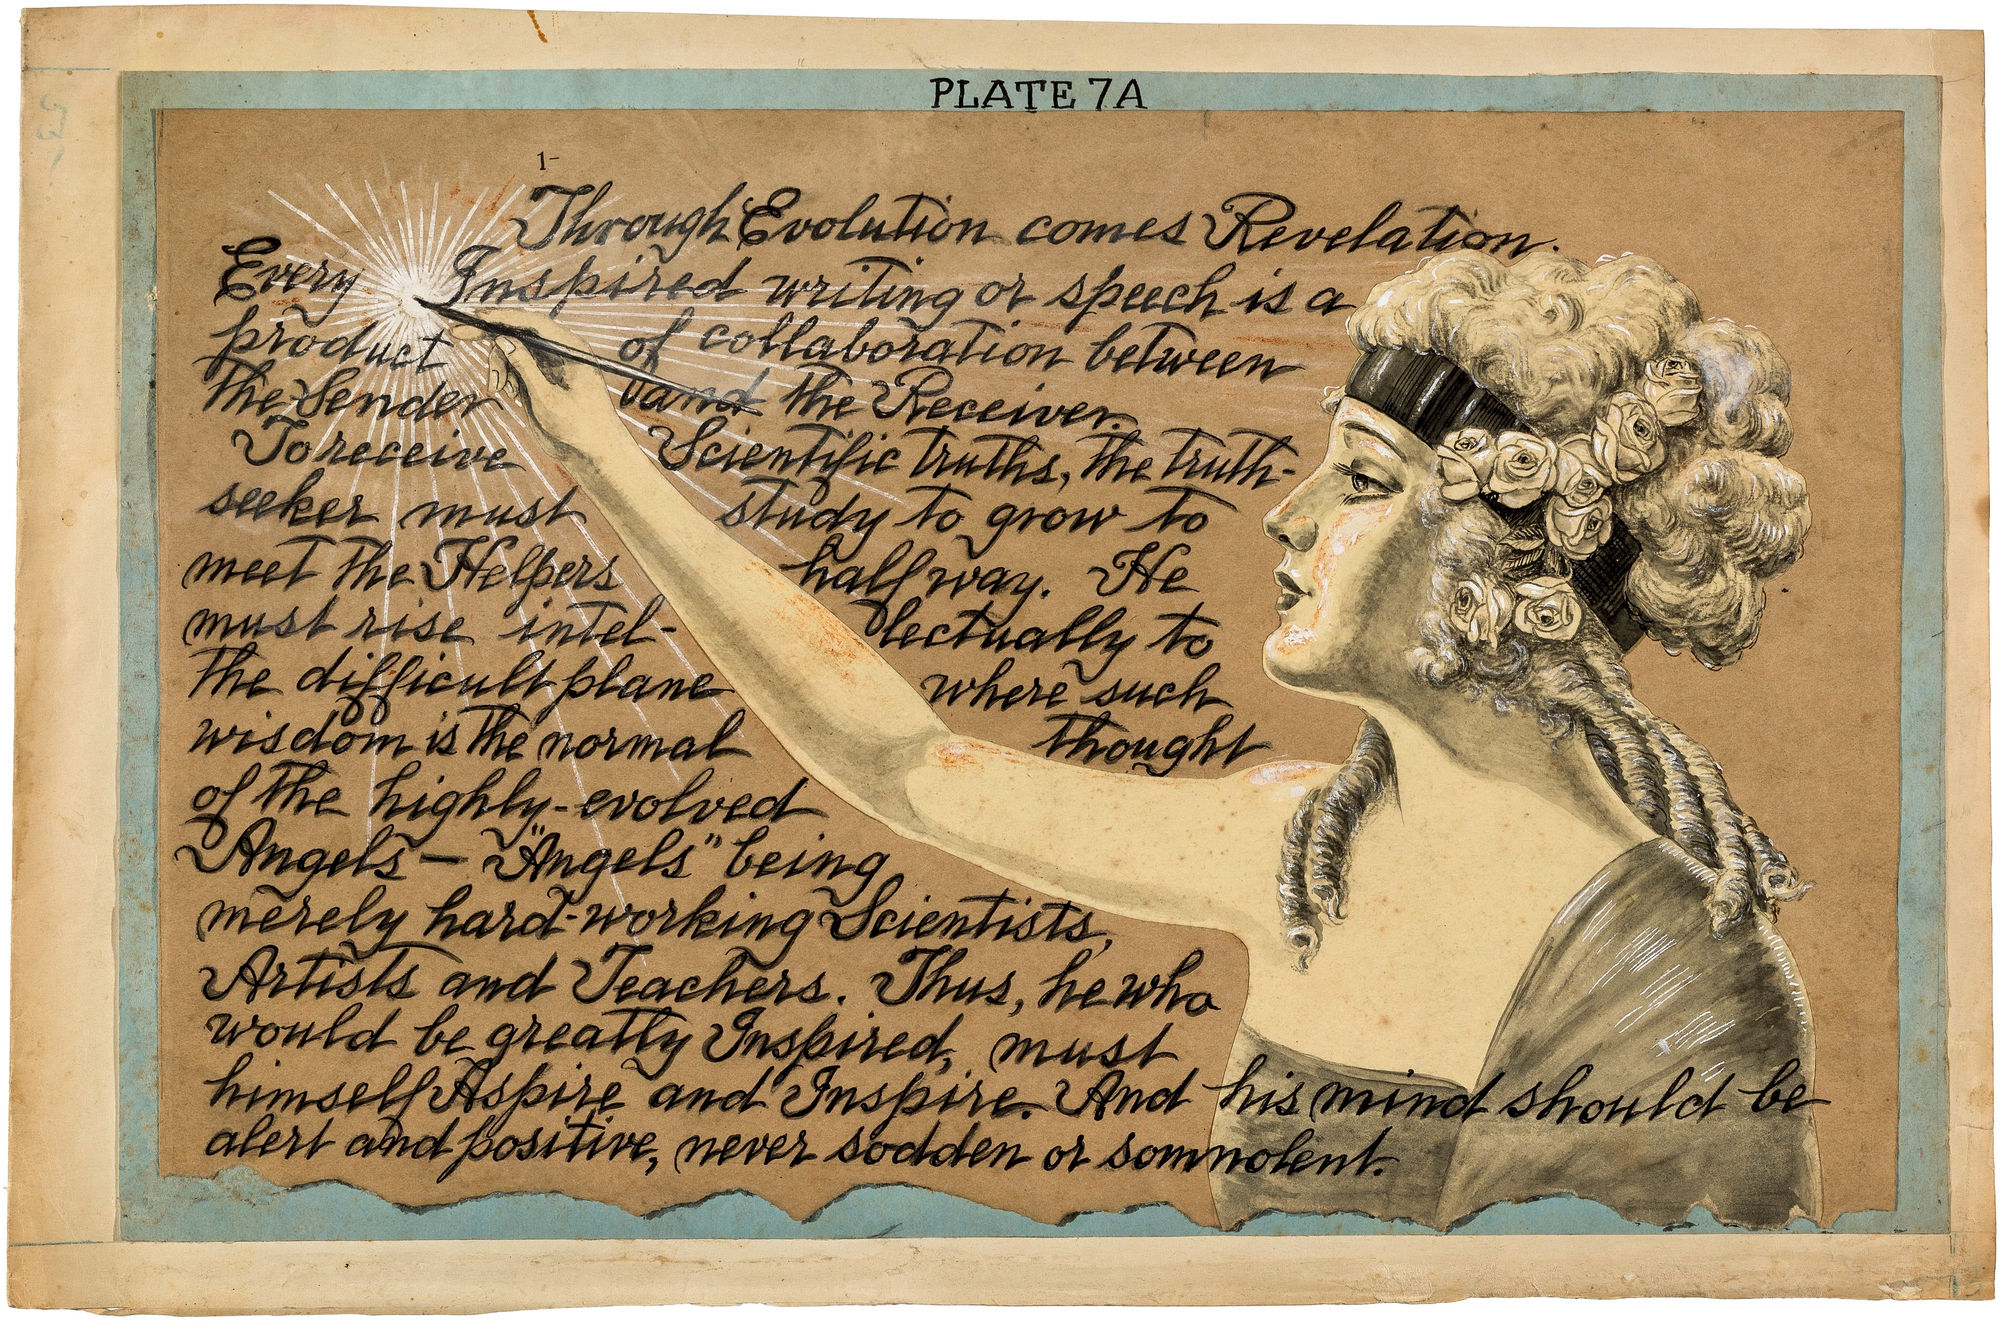 PLATE 7A
1-
Through Evolution comes Revelation.
Every Inspired writing or speech is a
product of collaboration between
the Sender and the Receiver.
To receive Scientific truths, the truth-
seeker must study to grow to
meet the Helpers half way. He
must rise intel- lectually to
the difficult plane where such
wisdom is the normal thought
of the highly-evolved
Angels — "Angels" being
merely hard-working Scientists,
Artists and Teachers. Thus, he who
would be greatly Inspired, must
himself Aspire and Inspire. And his mind should be
alert and positive, never sodden or somnolent.